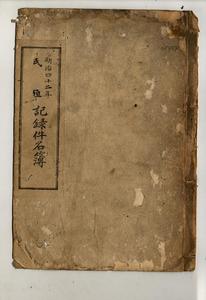 明治四十二年
民
記録件名簿